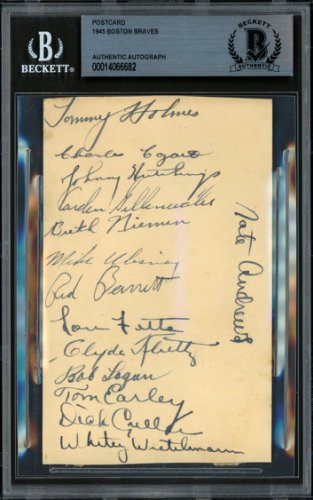 BECKETT
POSTCARD
1945 BOSTON BRAVES
AUTHENTIC AUTOGRAPH
00014066682
BECKETT
AUTHENTIC
Tommy Holmes
Charles Cozart
Johnny Hutchings
Carden Gillenwater
Butch Nieman
Mike Ulisney
Red Barrett
Lou Fette
Clyde Kluttz
Bob Logan
Tom Earley
Dick Culler
Whitey Wietelmann
Nate Andrews